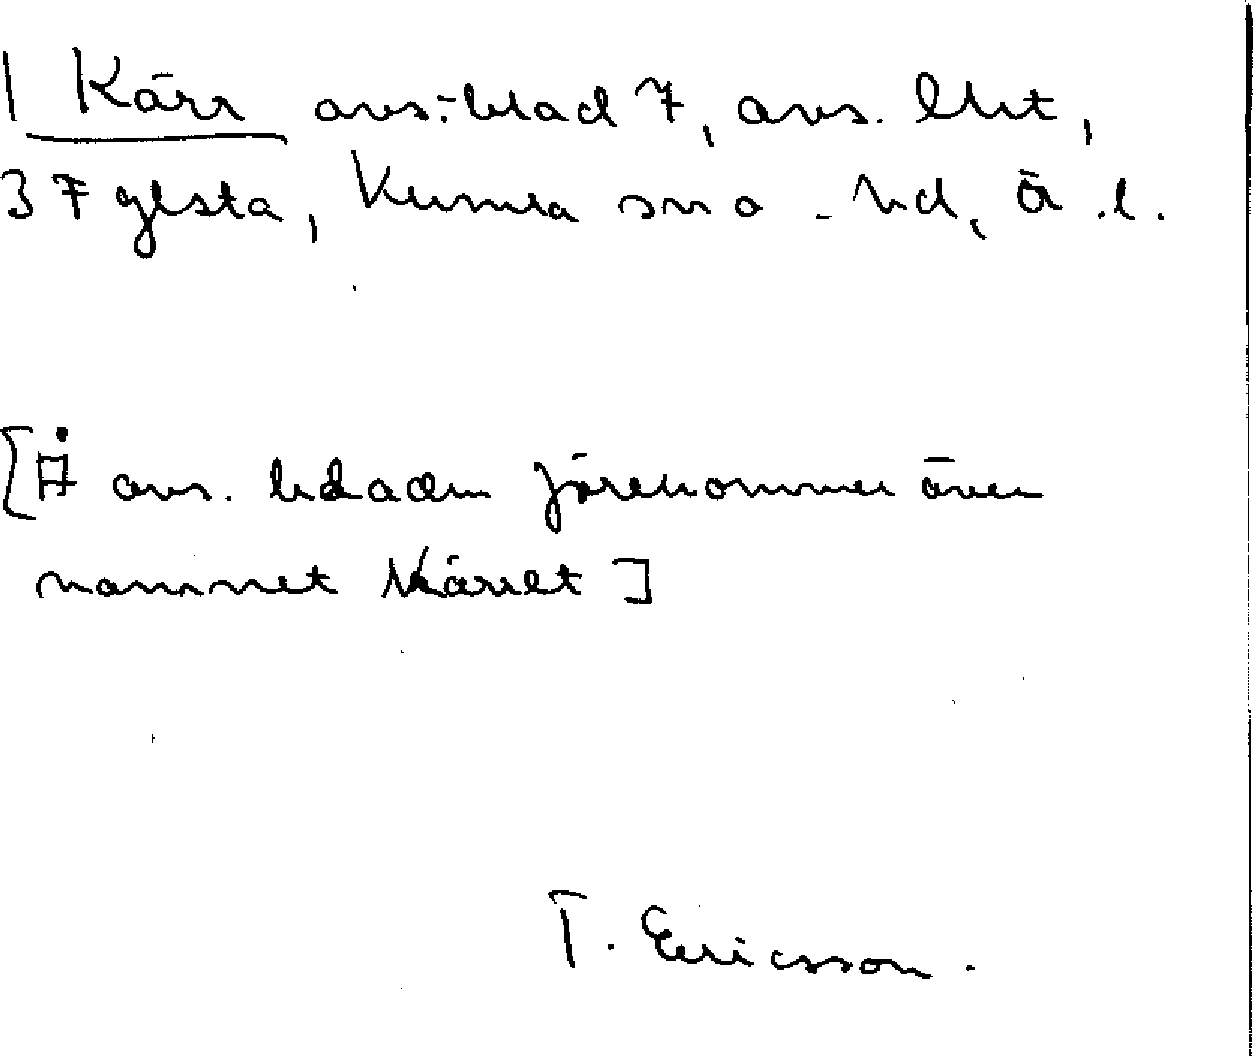 1 Kärr avs.-blad 7, avs. lht,
3 Fylsta, Kumla sn o -hd, Ö.l.
[Å avs. bladen förekommer även
namnet Kärret]
T. Ericsson.